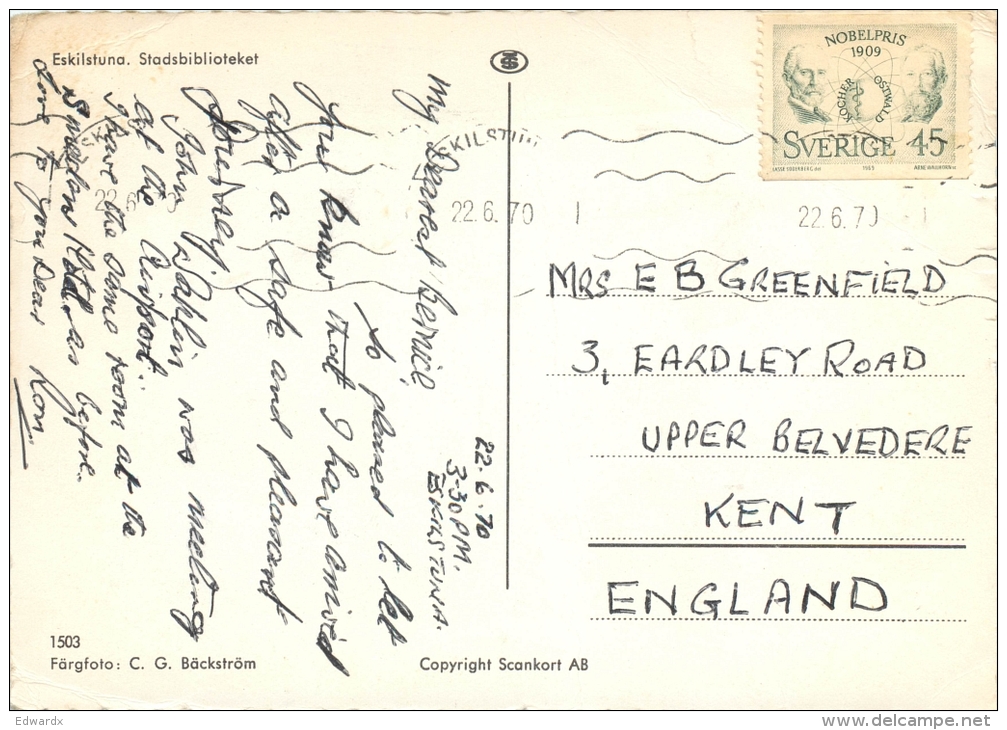 Eskilstuna. Stadsbiblioteket
22.6.70
3-30 PM.
ESKILSTUNA.
My Dearest Bernice,
So pleased to let
you know that I have arrived
after a safe and pleasant
Journey.
John Dahlin was meeting
at the Airport.
I have the same room at the
Sundins Hotel as before.
Love to you Dear Ron
1503
Färgfoto: C. G. Bäckström
Copyright Scankort AB
NOBELPRIS
1909
KOCHER
OSTWALD
SVERIGE 45
LASSE SÖDERBERG del
1969
ARNE WALLHORN sc
ESKILSTUNA
22.6.70
22.6.70
22.6
MRS E B GREENFIELD
3, EARDLEY ROAD
UPPER BELVEDERE
KENT
ENGLAND
Edwardx
www.delcampe.net